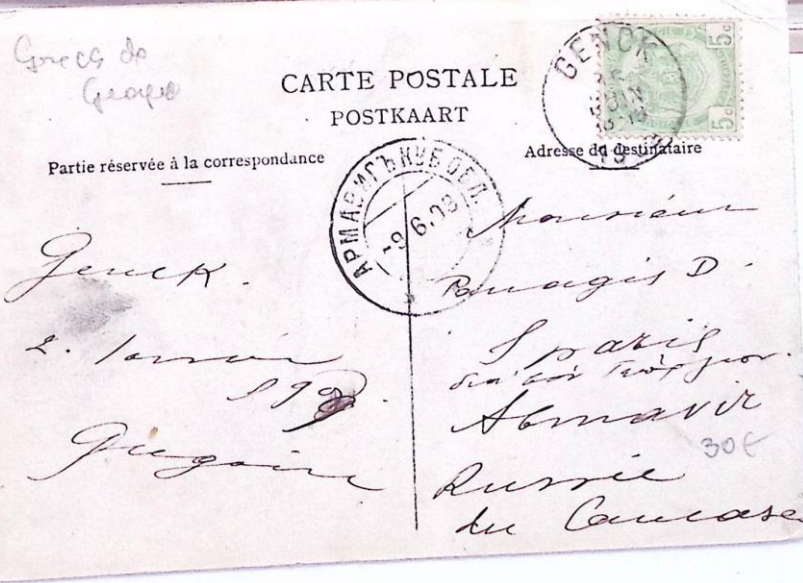 CARTE POSTALE
POSTKAART
Partie réservée à la correspondance
Adresse du destinataire
GENCK
5c
5c
АРМАВИРЪ КУБ. ОБЛ.
-9.6.09
Genck.
2.
Grégoire
Monsieur
Panagis D.
Sparis
Armavir
Russie
du Caucase
30€